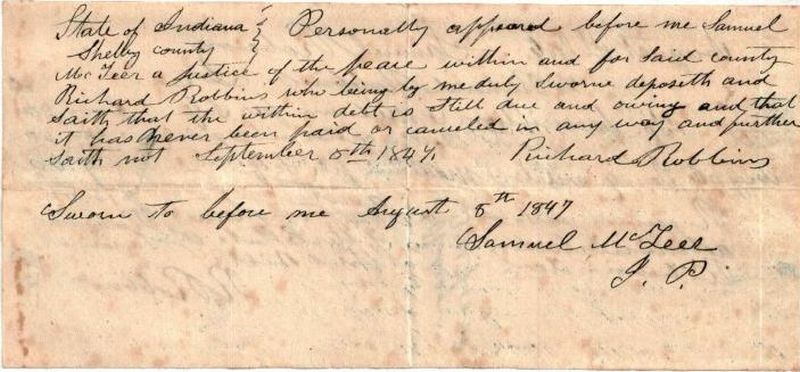 State of Indiana } Personally appeard before me Samuel
Shelby county }
McTeer a Justice of the peace within and for Said county
Richard Robbins who being by me duly Sworne deposeth and
Saith that the within debt is Still due and owing and that
it has never been paid or canceled in any way and further
Saith not September 8th 1847. Richard Robbins
Sworn to before me August 8th 1847
Samuel McTeer
J. P.